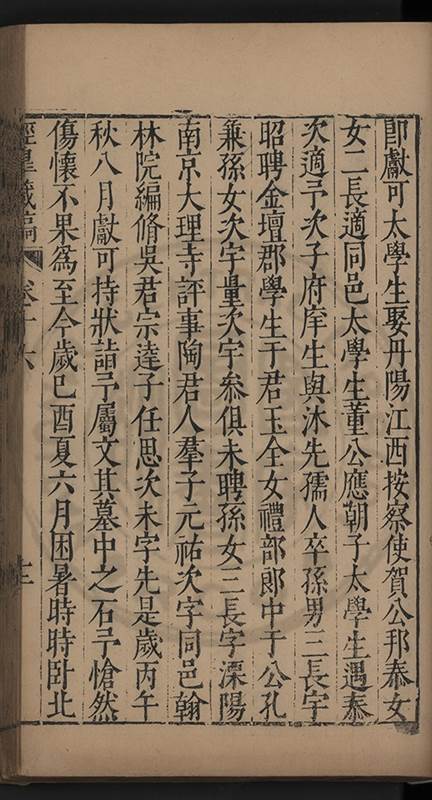 卽獻可太學生娶丹陽江西按察使賀公邦泰女
女二長適同邑太學生董公應朝子太學生遇泰
次適予次子府庠生與沐先孺人卒孫男三長宇
昭聘金壇郡學生于君玉全女禮部郎中于公孔
兼孫女次宇量次宇叅俱未聘孫女三長字溧陽
南京大理寺評事陶君人羣子元祐次字同邑翰
林院編脩吳君宗達子任思次未字先是歲丙午
秋八月獻可持狀詣予屬文其墓中之石予愴然
傷懷不果爲至今歲己酉夏六月困暑時時卧北
經臯藏稿
卷十六
十二